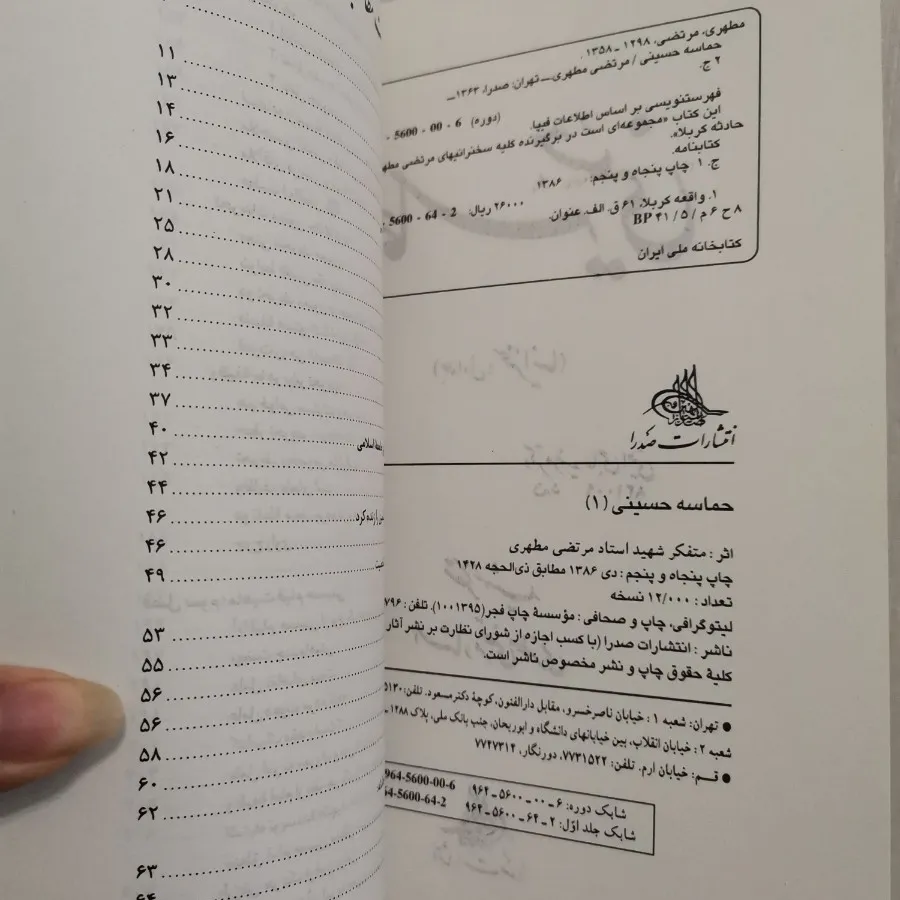 مطهری، مرتضی، ۱۲۹۸ ـ ۱۳۵۸.
حماسه حسینی / مرتضی مطهری.ــ تهران: صدرا، ۱۳۶۳ــ
۲ ج.
(دوره) 6 - 00 - 5600 -
فهرستنویسی بر اساس اطلاعات فیپا.
این کتاب «مجموعه‌ای است در برگیرنده کلیه سخنرانیهای مرتضی مطهر
حادثه کربلا».
کتابنامه.
ج. ۱ چاپ پنجاه و پنجم: ۱۳۸۶
۲۶۰۰۰ ریال: 2 - 64 - 5600
۱. واقعه کربلا، ۶۱ ق. الف. عنوان.
۸ ح ۶ م / ۵ / ۴۱ BP
کتابخانه ملی ایران
انتشارات صدرا
حماسه حسینی (۱)
اثر: متفکر شهید استاد مرتضی مطهری
چاپ پنجاه و پنجم: دی ۱۳۸۶ مطابق ذی‌الحجه ۱۴۲۸
تعداد: ۱۲/۰۰۰ نسخه
لیتوگرافی، چاپ و صحافی: مؤسسهٔ چاپ فجر (۱۰۰۱۳۹۵). تلفن: ۷۹۶
ناشر: انتشارات صدرا (با کسب اجازه از شورای نظارت بر نشر آثار
کلیهٔ حقوق چاپ و نشر مخصوص ناشر است.
● تهران: شعبه ۱: خیابان ناصرخسرو، مقابل دارالفنون، کوچهٔ دکتر مسعود. تلفن: ۵۱۳۰
شعبه ۲: خیابان انقلاب، بین خیابانهای دانشگاه و ابوریحان، جنب بانک ملی، پلاک ۱۲۸۸ ـ
● قم: خیابان ارم. تلفن: ۷۷۳۱۵۲۲، دورنگار: ۷۷۴۷۳۱۴
شابک دوره: ۶ ـ ۰۰ ـ ۵۶۰۰ ـ ۹۶۴ 964-5600-00-6
شابک جلد اوّل: ۲ ـ ۶۴ ـ ۵۶۰۰ ـ ۹۶۴ 64-5600-64-2
۱۱
۱۳
۱۴
۱۶
۱۸
۲۱
۲۵
۲۸
۳۰
۳۲
۳۳
۳۴
۳۷
۴۰
اسلامی
۴۲
۴۴
را زنده کرد ۴۶
۴۶
۴۹
۵۳
۵۵
۵۶
۵۶
۵۸
۶۰
۶۲
۶۳
۶۴